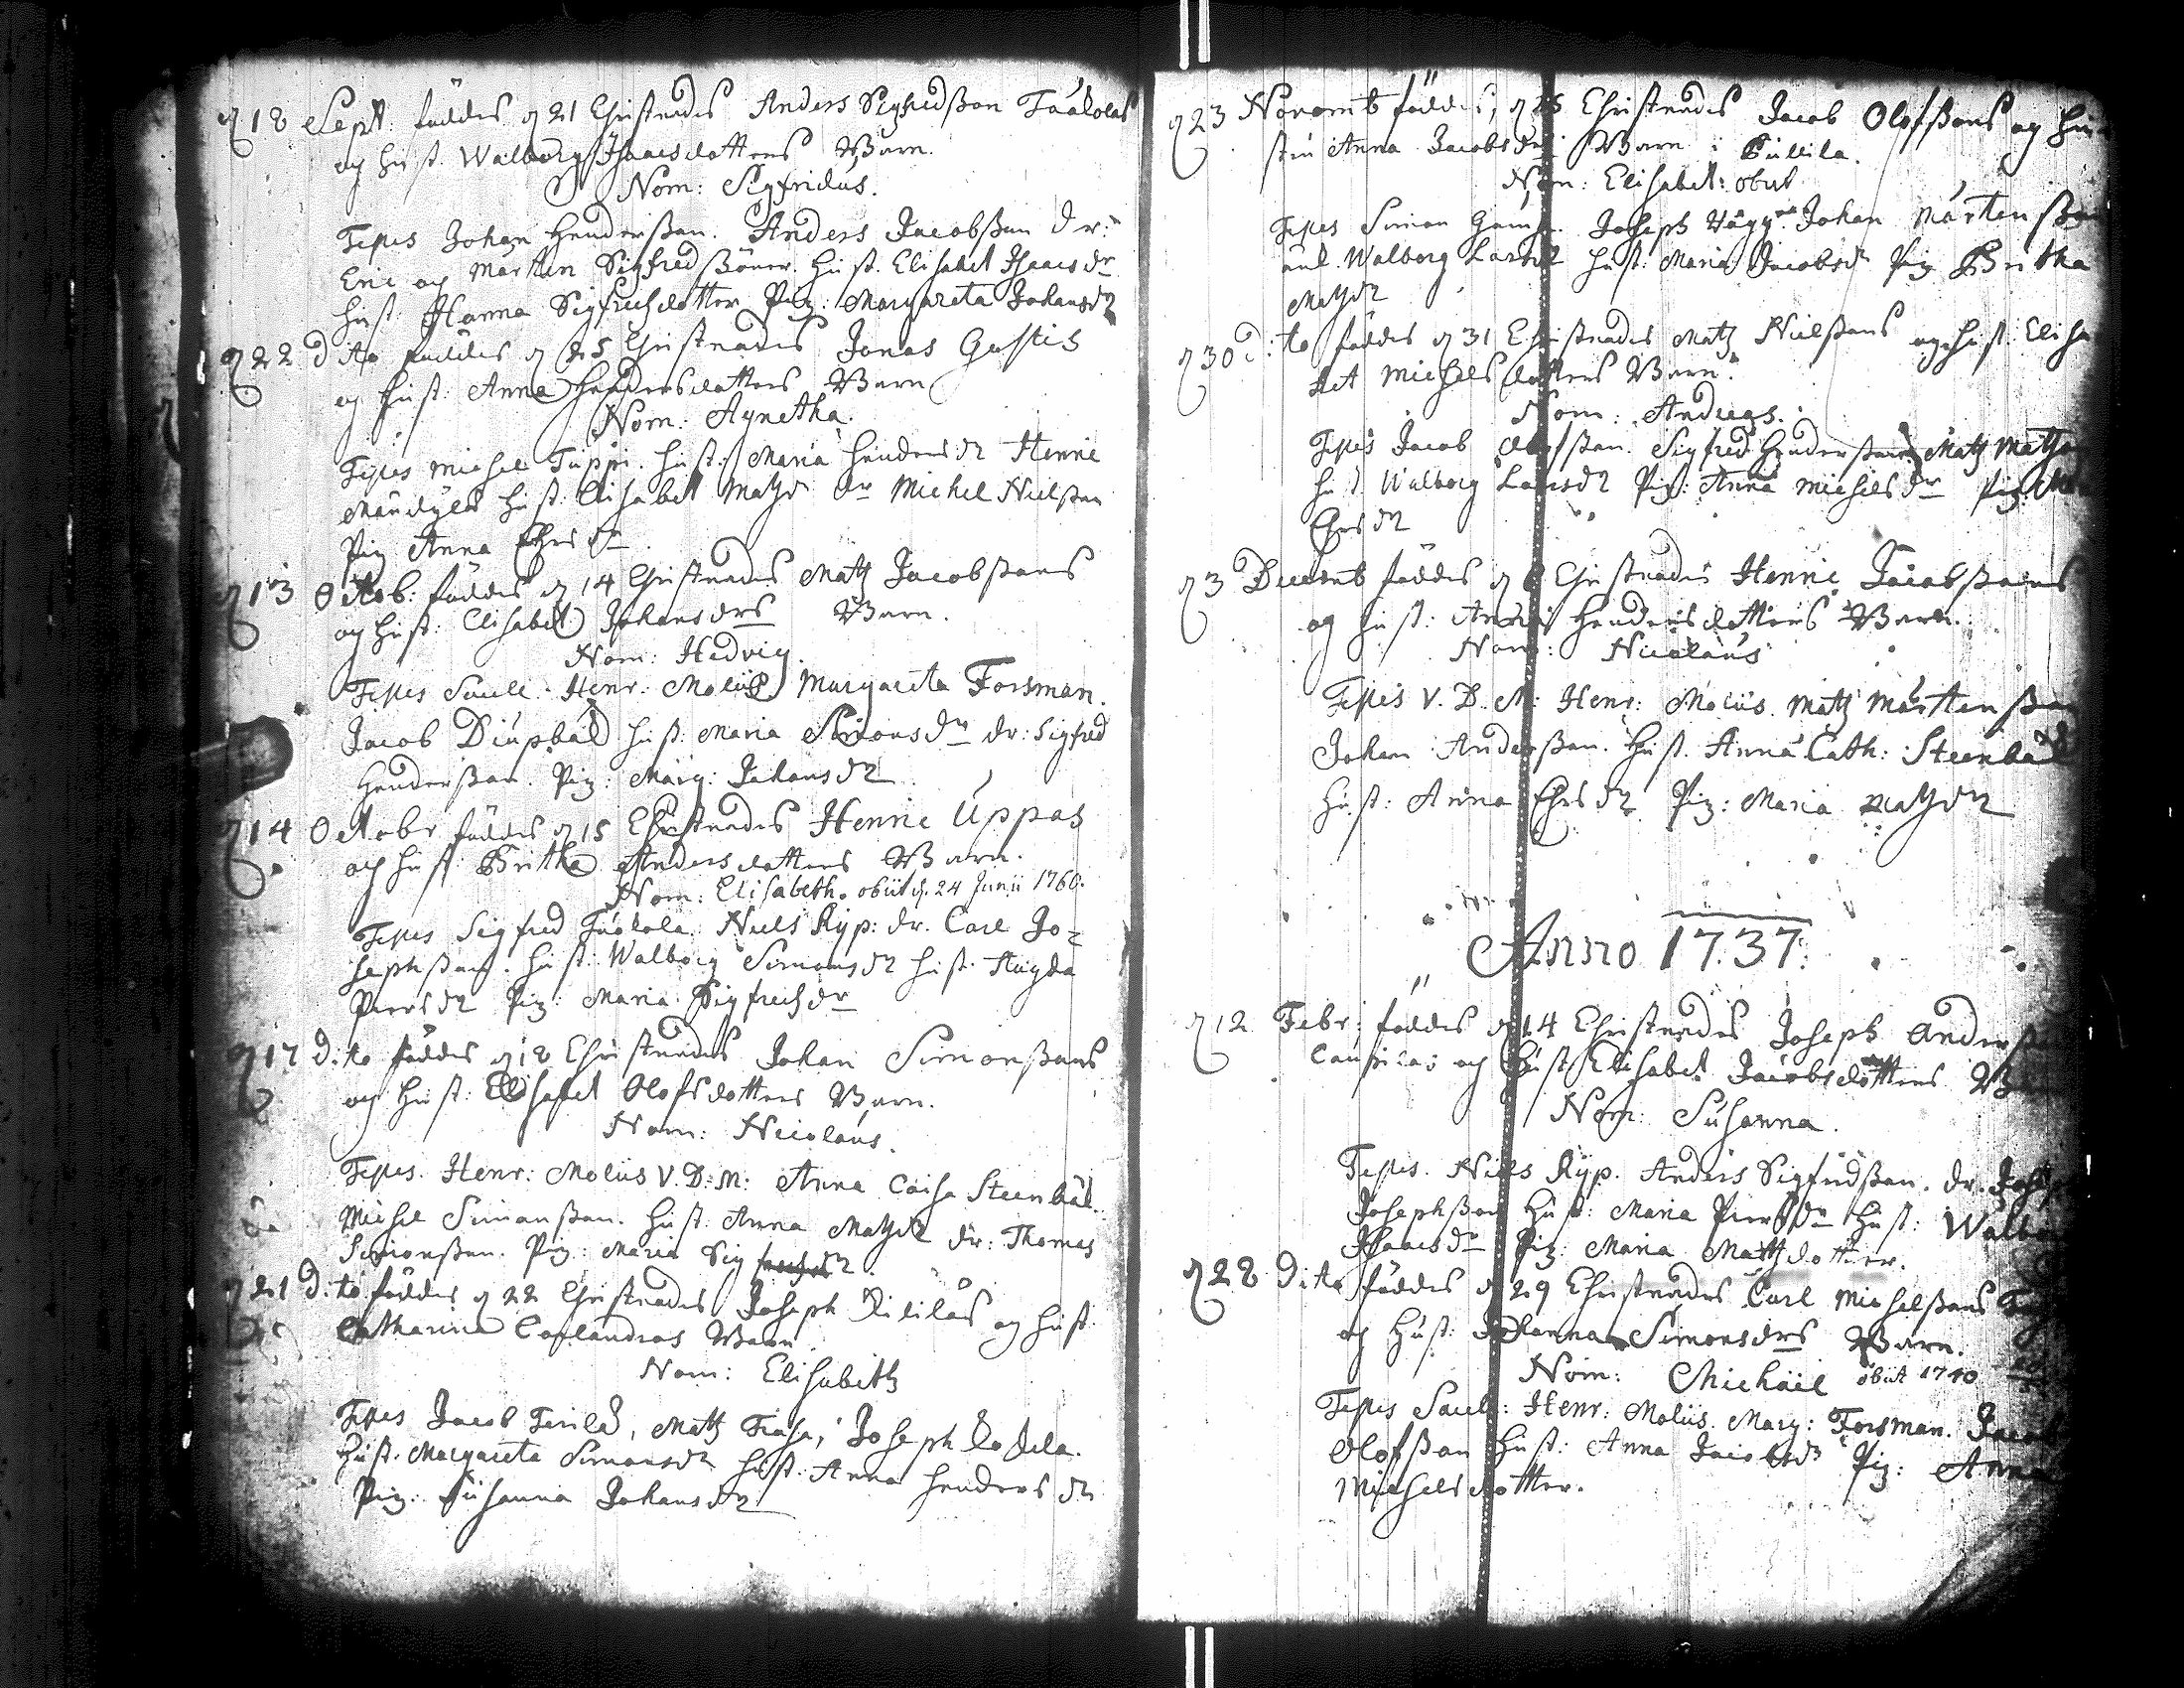 d 18 Sept. föddes d 21 Christnades Anders Sigfredßon
og hust. Walborg Isaacsdotters Barn.
Nom: Sigfridus.
Testes Johan Henderßan. Anders Jacobßan dr:
Eric og Mårten Sigfredßöner. Hust. Elisabet Isaacsdr
hust. Hanna Sigfredsdotter Pig: Margareta Johansdr
d 22 dito föddes d 25 Christnades Jonas
og hust: Anna Hendersdotters Barn
Nom: Agnetha.
Testes Michel Tuppi. hust: Maria Hendersdr Henric
hust: Elisabet Matzdr dr Michel Nielßan
Pig Anna Ehrsdr
d 13 Octob: föddes d 14 Christnades Matz Jacobßans
og hust: Elisabet Johansdrs Barn.
Nom: Hedvig.
Testes Henr: Molius Margareta Forsman.
Jacob hust: Maria Simonsdr dr: Sigfred
Henderßan. Pig: Marg: Johansdr
d 14 Octobr föddes d 15 Christnades Henric Uppas
og hust Britha Andersdotters Barn.
Nom: Elisabeth. obiit d. 24 Junii 1760.
Testes Sigfred Niels Ryp: dr. Carl Jo-
sephßan. hust: Walborg Simonsdr hust:
Piersdr Pig: Maria Sigfredsdr
d 17 dito föddes d 18 Christnades Johan Simonßans
og Hust: Elisabet Olofsdotters Barn.
Nom: Nicolaus.
Testes. Henr: Molius V.D.M: Anna Caisa Steenbäk.
Michel Simonßan. hust: Anna Matzdr dr: Thomas
Simonßan. Pig: Maria
d 21 dito föddes d 22 Christnades Joseph og hust:
Catharina Barn.
Nom: Elisabeth
Testes Jacob Matz Joseph
Hust. Margareta Simonsdr hust: Anna Hendersdr
Pig: Susanna Johansdr
d 23 Novemb föddes, d 25 Christnades Jacob Olofßans og
Anna Jacobsdrs Barn i
Nom: Elisabet: obiit
Testes Simon Joseph Johan Mårtenßan
Walborg Larsdr hust: Maria Jacobsdr Pig Britha
Matzdr
d 30 dito föddes d 31 Christnades Matz Nielßans og hust: Elisa
bet Michelsdotters Barn.
Nom: Andreas.
Testes Jacob Olofßan. Sigfred Henderßan Matz
Walborg Larsdr Pig: Anna Michelsdr Pig:
Ehrsdr
d 3 Decemb föddes d Christnades Henric Jacobßans
og hust: Anna Hendersdotters Barn.
Nom: Nicolaus
Testes V.D.M: Henr: Molius. Matz Mårtenßan
Johan Anderßan. Hust. Anna Cath: Steenbäk
Hust: Anna Ehrsdr Pig: Maria Matzdr
Anno 1737:
d 12 Febr: föddes d 14 Christnades Joseph
og Hust Elisabet Jacobsdotters
Nom: Susanna.
Testes. Niels Ryp. Anders Sigfredßan. dr.
Josephßan Hust: Maria Piersdr Hust:
Isaacsdr Pig: Maria Matzdotter.
d 28 dito föddes d 29 Christnades Carl Michelßans
og Hust: Johanna Simonsdrs Barn.
Nom: Michäel obiit 1740
Testes Henr: Molius. Marg: Forsman.
Olofßan Hust: Anna Jacobsdr Pig: Anna
Michelsdotter.